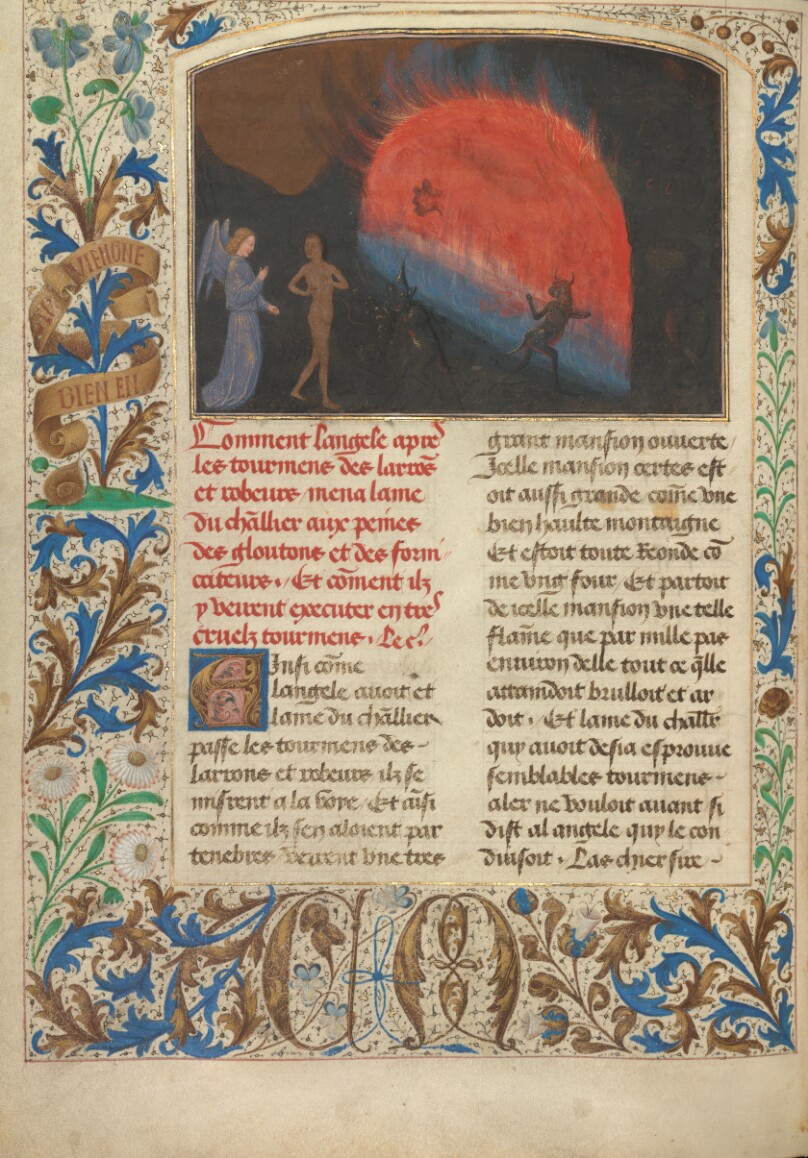 VIENGNE
BIEN EN
Comment langele apres
les tourmens des larrōs
et robeurs mena lame
du chāllier aux peines
des gloutons et des forni
cateurs. Et cōment ilz
y veirent executer en tres
cruelz tourmens. Le c.
Ainsi cōme
langele auoit et
lame du chāllier
passe les tourmens des
larrons et robeurs ilz se
misrent a la voye. Et aīsi
comme ilz sen aloient par
tenebres veirent vne tres
grant mansion ouuerte
Icelle mansion certes est
oit aussi grande cōme vne
bien haulte montaigne
Et estoit toute Reonde cō
me vng four. Et partoit
de icelle mansion vne telle
flāme que par mille pas
enuiron delle tout ce q̄lle
attaindoit brulloit et ar
doit. Et lame du challr
quy auoit desia esprouue
semblables tourmens
aler ne vouloit auant si
dist al angele quy le con
duisoit. Las chier sire